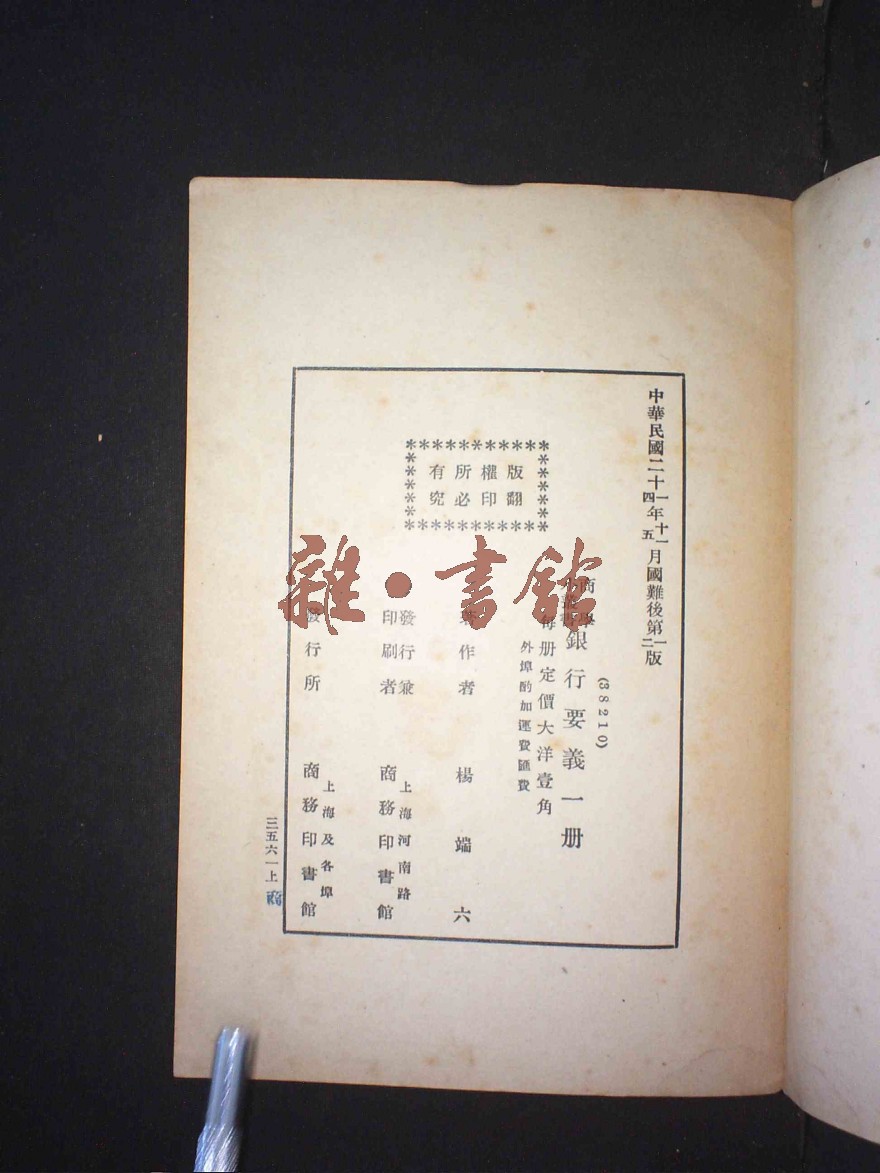 中華民國二十一年十一月國難後第一版
四 五 二
(38210)
商學
小叢書
銀行要義一册
每册定價大洋壹角
外埠酌加運費匯費
版權所有
翻印必究
著作者 楊端六
發行兼
印刷者
上海河南路
商務印書館
發行所
上海及各埠
商務印書館
三五六一上
商
雜·書館